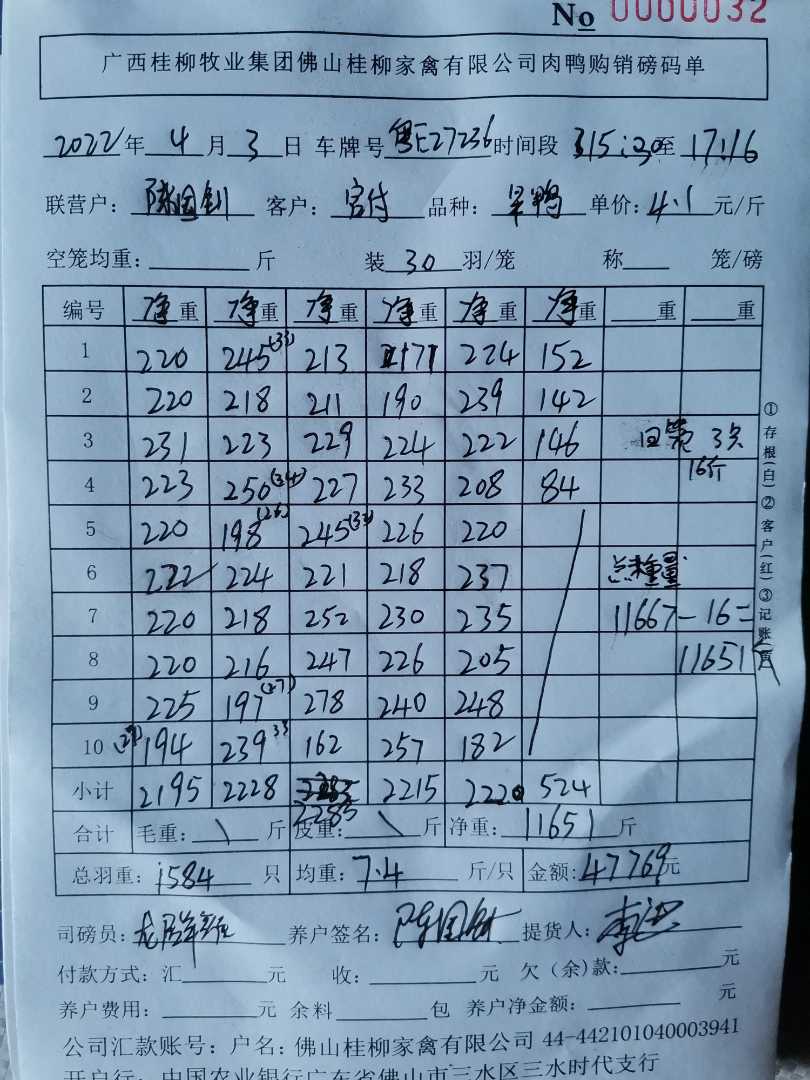 No 0000032
广西桂柳牧业集团佛山桂柳家禽有限公司肉鸭购销磅码单
2022年 4 月 3 日 车牌号 粤E27236 时间段 15:30至 17:16
联营户: 陈国钊 客户: 品种: 单价: 4.1 元/斤
空笼均重: 斤 装 30 羽/笼 称 笼/磅
编号 净重 净重 净重 净重 净重 净重 重 重
1 220 245(33) 213 171 224 152
2 220 218 211 190 239 142
3 231 223 229 224 222 146 3只
4 223 250(34) 227 233 208 84 16斤
5 220 198(26) 245(33) 226 220
6 222 224 221 218 237 总重量
7 220 218 252 230 235 11667-16=
8 220 216 247 226 205 11651
9 225 197(27) 278 240 248
10 194 239 33 162 257 182
小计 2195 2228 2285 2215 2220 524
合计 毛重: \ 斤 皮重: \ 斤 净重: 11651 斤
总羽重: 1584 只 均重: 7.4 斤/只 金额: 47769元
司磅员: 养户签名: 陈国钊 提货人:
付款方式: 汇 元 收: 元 欠(余)款: 元
养户费用: 元 余料 包 养户净金额: 元
公司汇款账号: 户名: 佛山桂柳家禽有限公司 44-442101040003941
开户行: 中国农业银行广东省佛山市三水区三水时代支行
①存根(白)②客户(红)③记账(黄)